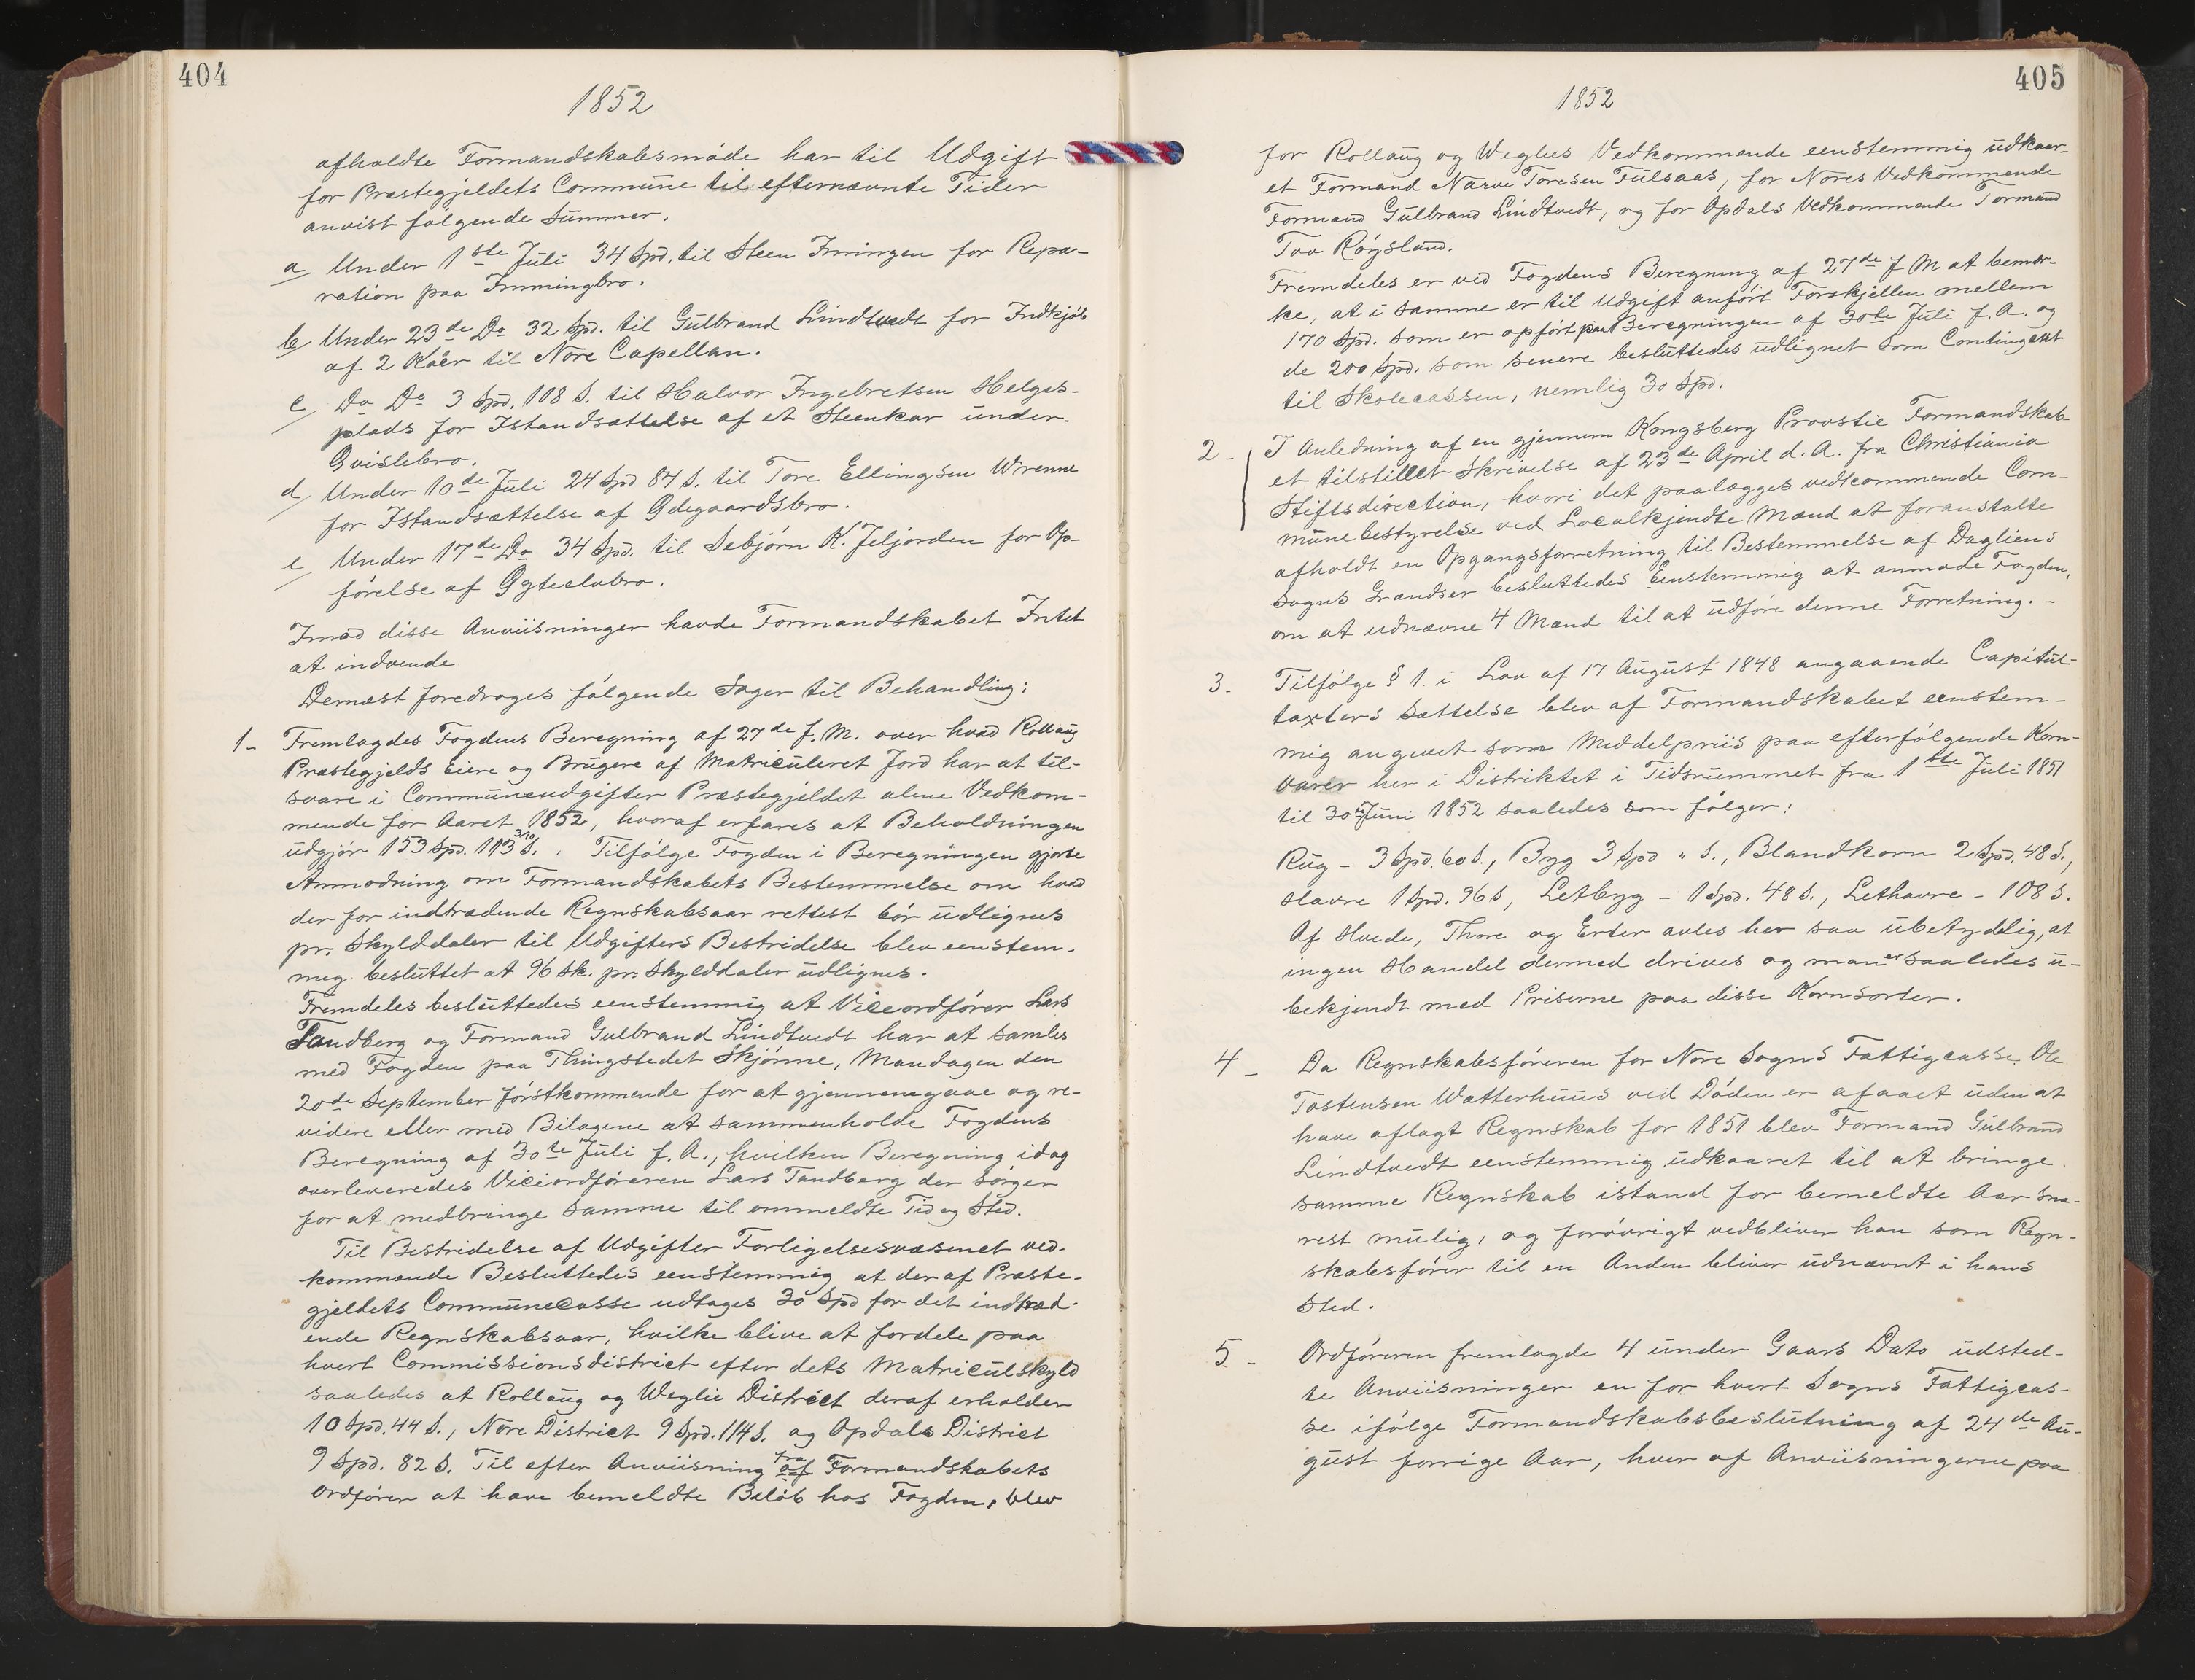 404
1852
afholdte Formandskabsmøde har til Udgift
for Præstegjeldets Commune til efternævnte Tider
anvist følgende Summer.
a/ Under 1ste Juli 34 Spd. til Steen Imingen for Repa-
ration paa Immingbro.
b/ Under 23de Do 32 Spd. til Gulbrand Lindtvedt for Indkjøb
af 2 Køer til Nore Capellan.
c/ Do Do 3 Spd. 108 S. til Halvor Ingebretsen Helges-
plads for Istandsættelse af et Steenkar under
Gvislebro.
d/ Under 10de Juli 24 Spd 84 S. til Tore Ellingsen Wrenne
for Istandsættelse af Ødegaardsbro.
e/ Under 17de Do 34 Spd. til Sebjørn K. Jeljorden for Op-
førelse af Øgteelvbro.
Imod disse Anviisninger havde Formandskabet Intet
at indvende
Dernæst foredroges følgende Sager til Behandling:
1- Fremlagdes Fogdens Beregning af 27de f. M. over hvad Rollaug
Præstegjelds Eiere og Brugere af Matriculeret Jord har at til-
svare i Communeudgifter Præstegjeldet alene Vedkom-
mende for Aaret 1852, hvoraf erfares at Beholdningen
udgjør 153 Spd. 113 3/10 S. . Tilfølge Fogden i Beregningen gjorte
Anmodning om Formandskabets Bestemmelse om hvad
der for indtrædende Regnskabsaar rettest bør udlignes
pr. Skylddaler til Udgifters Bestridelse blev eenstem-
mig besluttet at 96 Sk. pr. Skylddaler udlignes.
Fremdeles besluttedes eenstemmig at Viceordfører Lars
Tandberg og Formand Gulbrand Lindtvedt har at samles
med Fogden paa Thingstedet Skjønne, Mandagen den
20de September førstkommende for at gjennemgaae og re-
videre eller med Bilagene at sammenholde Fogdens
Beregning af 30te Juli f. A., hvilken Beregning idag
overleveredes Viceordføreren Lars Tandberg der sørger
for at medbringe samme til ommeldte Tid og Sted.
Til Bestridelse af Udgifter Forligelsesvæsenet ved-
kommende Besluttedes eenstemmig at der af Præste-
gjeldets Communecasse udtages 30 Spd for det indtræd-
ende Regnskabsaar, hvilke blive at fordele paa
hvert Commissionsdistrict efter dets Matriculskyld
saaledes at Rollaug og Weglie District deraf erholder
10 Spd. 44 S., Nore District 9 Spd. 114 S. og Opdals District
9 Spd. 82 S. Til efter Anviisning fra af Formandskabets
Ordfører at hæve bemeldte Beløb hos Fogden, blev
405
1852
for Rollaug og Weglies Vedkommende eenstemmig udkaar-
et Formand Narve Toresen Fulsaas, for Nores Vedkommende
Formand Gulbrand Lindtvedt, og for Opdals Vedkommende Formand
Tov Røysland.
Fremdeles er ved Fogdens Beregning af 27de f M at bemær-
ke, at i samme er til Udgift anført Forskjellen mellem
170 Spd. som er opført paa Beregningen af 30te Juli f. A. og
de 200 Spd. som senere besluttedes udlignet som Contingent
til Skolecassen, nemlig 30 Spd.
2- I Anledning af en gjennem Kongsberg Provstie Formandskab-
et tilstillet Skrivelse af 23de April d. A. fra Christiania
Stiftsdirection, hvori det paalægges vedkommende Com-
munebestyrelse ved Localkjendte Mænd at foranstalte
afholdt en Opgangsforretning til Bestemmelse af Dagliens
Sogns Grændser besluttedes Eenstemmig at anmode Fogden,
om at udnævne 4 Mænd til at udføre denne Forretning. -
3. Tilfølge § 1. i Lov af 17 August 1848 angaaende Capitul-
taxters Sættelse blev af Formandskabet eenstem-
mig angivet som Middelpriis paa efterfølgende Korn-
varer her i Distriktet i Tidsrummet fra 1ste Juli 1851
til 30te Juni 1852 saaledes som følger:
Rug - 3 Spd. 60 S., Byg 3 Spd " S., Blandkorn 2 Spd. 48 S.,
Havre 1 Spd. 96 S, Letbyg - 1 Spd. 48 S., Lethavre - 108 S.
Af Hvede, Thore og Erter avles her saa ubetydelig, at
ingen Handel dermed drives og man er saaledes u-
bekjendt med Priserne paa disse Kornsorter.
4- Da Regnskabsføreren for Nore Sogns Fattigcasse Ole
Tostensen Watterhuus ved Døden er afgaaet uden at
have aflagt Regnskab for 1851 blev Formand Gulbrand
Lindtvedt eenstemmig udkaaret til at bringe
samme Regnskab istand for bemeldte Aar sna-
rest mulig, og forøvrigt vedbliver han som Regn-
skabsfører til en Anden bliver udnævnt i hans
Sted.
5- Ordføreren fremlagde 4 under Gaars Dato udsted-
te Anviisninger en for hvert Sogns Fattigcas-
se ifølge Formandskabsbeslutning af 24de Au-
gust forrige Aar, hver af Anviisningerne paa